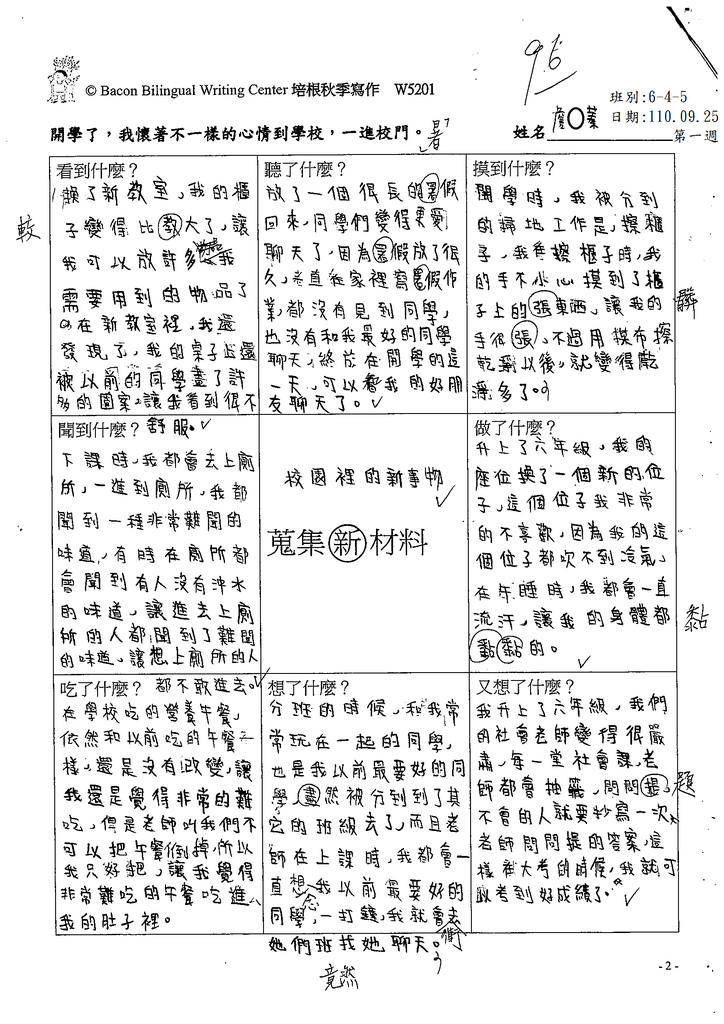 © Bacon Bilingual Writing Center 培根秋季寫作 W5201
96
班別:6-4-5
日期:110.09.25
開學了，我懷著不一樣的心情到學校，一進校門。
暑
姓名 詹〇蓁
第一週
看到什麼？
換了新教室，我的櫃
子變得比教大了，讓
我可以放許多我
需要用到的物品了
。在新教室裡，我還
發現了，我的桌子上還
被以前的同學畫了許
多的圖案，讓我看到很不
舒服。
較
聽了什麼？
放了一個很長的暑假
回來，同學們變得更愛
聊天了，因為暑假放了很
久，一直在家裡寫暑假作
業，都沒有見到同學，
也沒有和我最好的同學
聊天，終於在開學的這
一天，可以看我的好朋
友聊天了。
摸到什麼？
開學時，我被分到
的掃地工作是，擦櫃
子，我在擦櫃子時，我
的手不小心摸到了櫃
子上的張東西，讓我的
手很張，不過用抹布擦
乾淨以後，就變得乾
淨多了。
髒
聞到什麼？
下課時，我都會去上廁
所，一進到廁所，我都
聞到一種非常難聞的
味道，有時在廁所都
會聞到有人沒有沖水
的味道，讓進去上廁
所的人都聞到了難聞
的味道，讓想上廁所的人
都不敢進去。
校園裡的新事物
蒐集新材料
做了什麼？
升上了六年級，我的
座位換了一個新的位
子，這個位子我非常
的不喜歡，因為我的這
個位子都吹不到冷氣，
在午睡時，我都會一直
流汗，讓我的身體都
黏黏的。
黏
吃了什麼？
在學校吃的營養午餐，
依然和以前吃的午餐一
樣，還是沒有改變，讓
我還是覺得非常的難
吃，但是老師叫我們不
可以把午餐倒掉，所以
我只好把，讓我覺得
非常難吃的午餐吃進
我的肚子裡。
想了什麼？
分班的時候，和我常
常玩在一起的同學，
也是我以前最要好的同
學，盡然被分到到了其
它的班級去了，而且老
師在上課時，我都會一
直想我以前最要好的
念
同學，一打鐘，我就會去
衝
她們班找她聊天。
竟然
又想了什麼？
我升上了六年級，我們
的社會老師變得很嚴
肅，每一堂社會課，老
師都會抽籤，問問提，
不會的人就要抄寫一次
老師問問提的答案，這
樣在大考的時候，我就可
以考到好成績了。
題
-2-